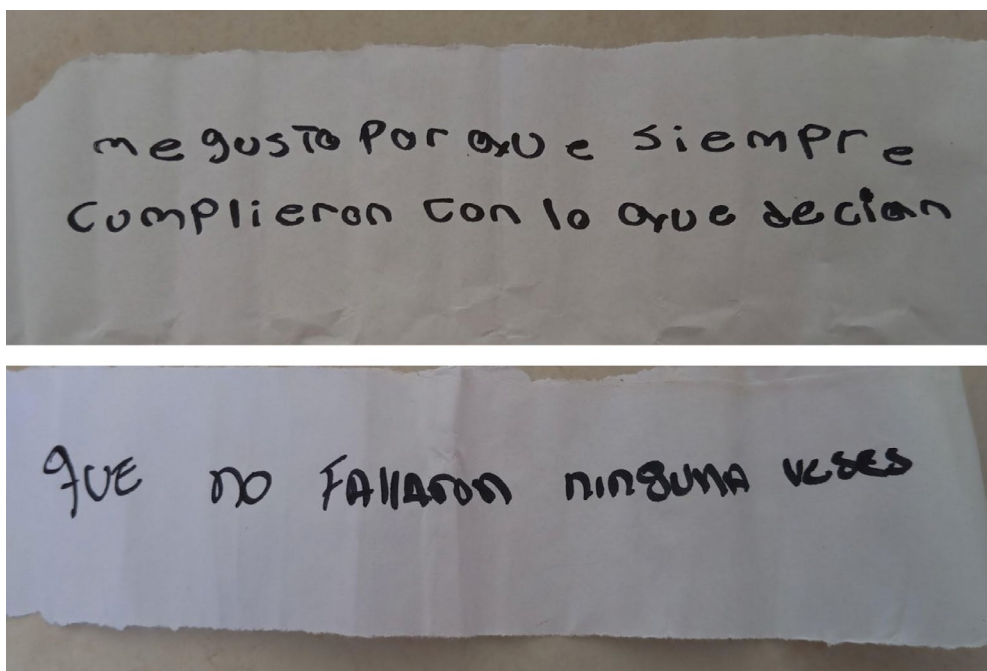 me gusto Por que siempre
Cumplieron con lo que decian
que no FAllAron ninguna veses